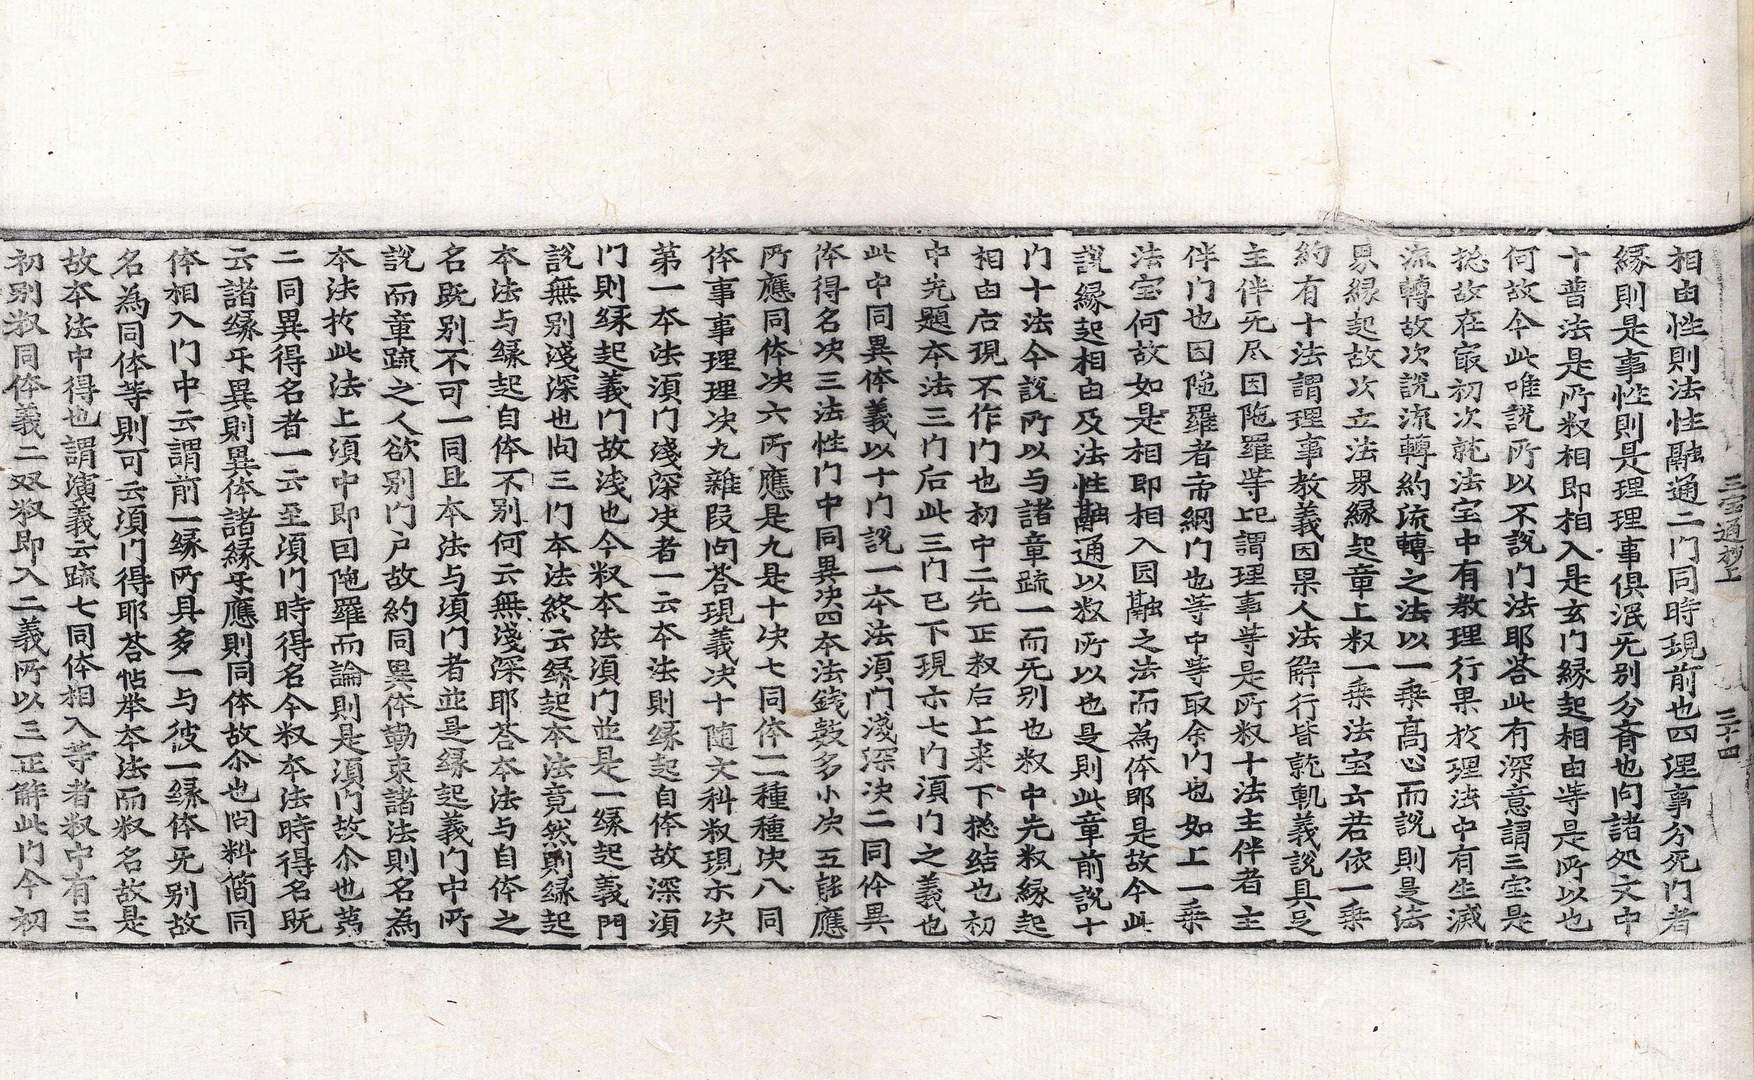 三宝通抄上 三十四
相由性則法性融通二门同時現前也四理事分死门者
縁則是事性則是理理事俱泯无别分斉也问諸处文中
十普法是所叙相即相入是玄门縁起相由等是所以也
何故今此唯説所以不説门法耶荅此有深意謂三宝是
捴故在㝡初次就法宝中有教理行果於理法中有生滅
流轉故次説流轉約流轉之法以一乗髙心而説則是法
界縁起故次立法界縁起章上叙一乗法宝云若依一乗
約有十法謂理事教義因果人法解行皆乾軌義説具足
主伴无尽因陁羅等比謂理事等是所叙十法主伴者主
伴门也因陁羅者帝網门也等中等取余门也如上一乗
法宝何故如是相即相入因融之法而為体耶是故今此
説縁起相由及法性融通以叙所以也是則此章前説十
门十法今説所以与諸章䟽一而无别也叙中先叙縁起
相由后現不作门也初中二先正叙后上来下捴结也初
中先題本法三门后此三门已下現示七门湏门之義也
此中同異体義以十门説一本法湏门淺深决二同体異
体得名决三法性门中同異决四本法銭數多小决五能應
所應同体决六所應是九是十决七同体二種種决八同
体事事理理决九雜叚问荅現義决十随文科叙現示决
第一本法湏门淺深决者一云本法則縁起自体故深湏
门則縁起義门故淺也今叙本法湏门並是一縁起義門
説無别淺深也问三门本法終云縁起本法竟然則縁起
本法与縁起自体不别何云無淺深耶荅本法与自体之
名既别不可一同且本法与湏门者並是縁起義门中所
説而章䟽之人欲别门户故約同異体勤束諸法則名為
本法於此法上湏中即因陁羅而論則是湏门故尒也第
二同異得名者一云至湏门時得名今叙本法時得名既
云諸縁乎異則異体諸縁乎應則同体故尒也问料简同
体相入门中云謂前一縁所具多一与彼一縁体无别故
名為同体等則可云湏门得耶荅帖举本法而叙名故是
故本法中得也謂演義云䟽七同体相入等者叙中有三
初别叙同体義二双叙即入二義所以三正解此门今初